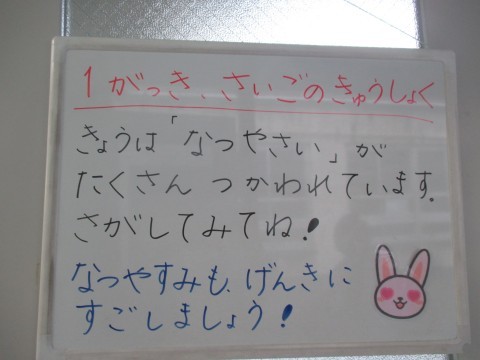 1がっき、さいごのきゅうしょく
きょうは「なつやさい」が
たくさん つかわれています。
さがしてみてね!
なつやすみも、げんきに
すごしましょう!